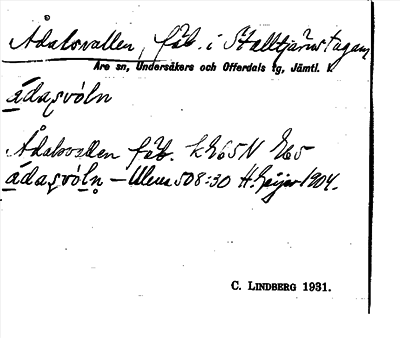 Ådalsvallen, fäb. i Stalltjärnstugan,
Åre sn, Undersåkers och Offerdals tg, Jämtl. l.
ádaṣvóln
Ådalsvallen fäb. k Æ65N Æ65
ádaṣvóln̥ – Ulena 508:30 H. Geijer 1904.
C. LINDBERG 1931.